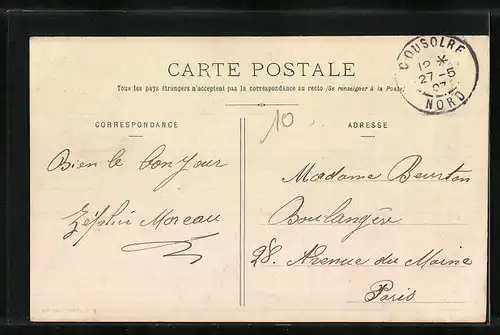 COUSOLRE
12 *
27 -5
07
NORD
CARTE POSTALE
Tous les pays étrangers n'acceptent pas la correspondance au recto (Se renseigner à la Poste)
10
CORRESPONDANCE
Bien le bonjour
Zéphir Moreau
ADRESSE
Madame Beurton
Boulangère
28. Avenue du Maine
Paris